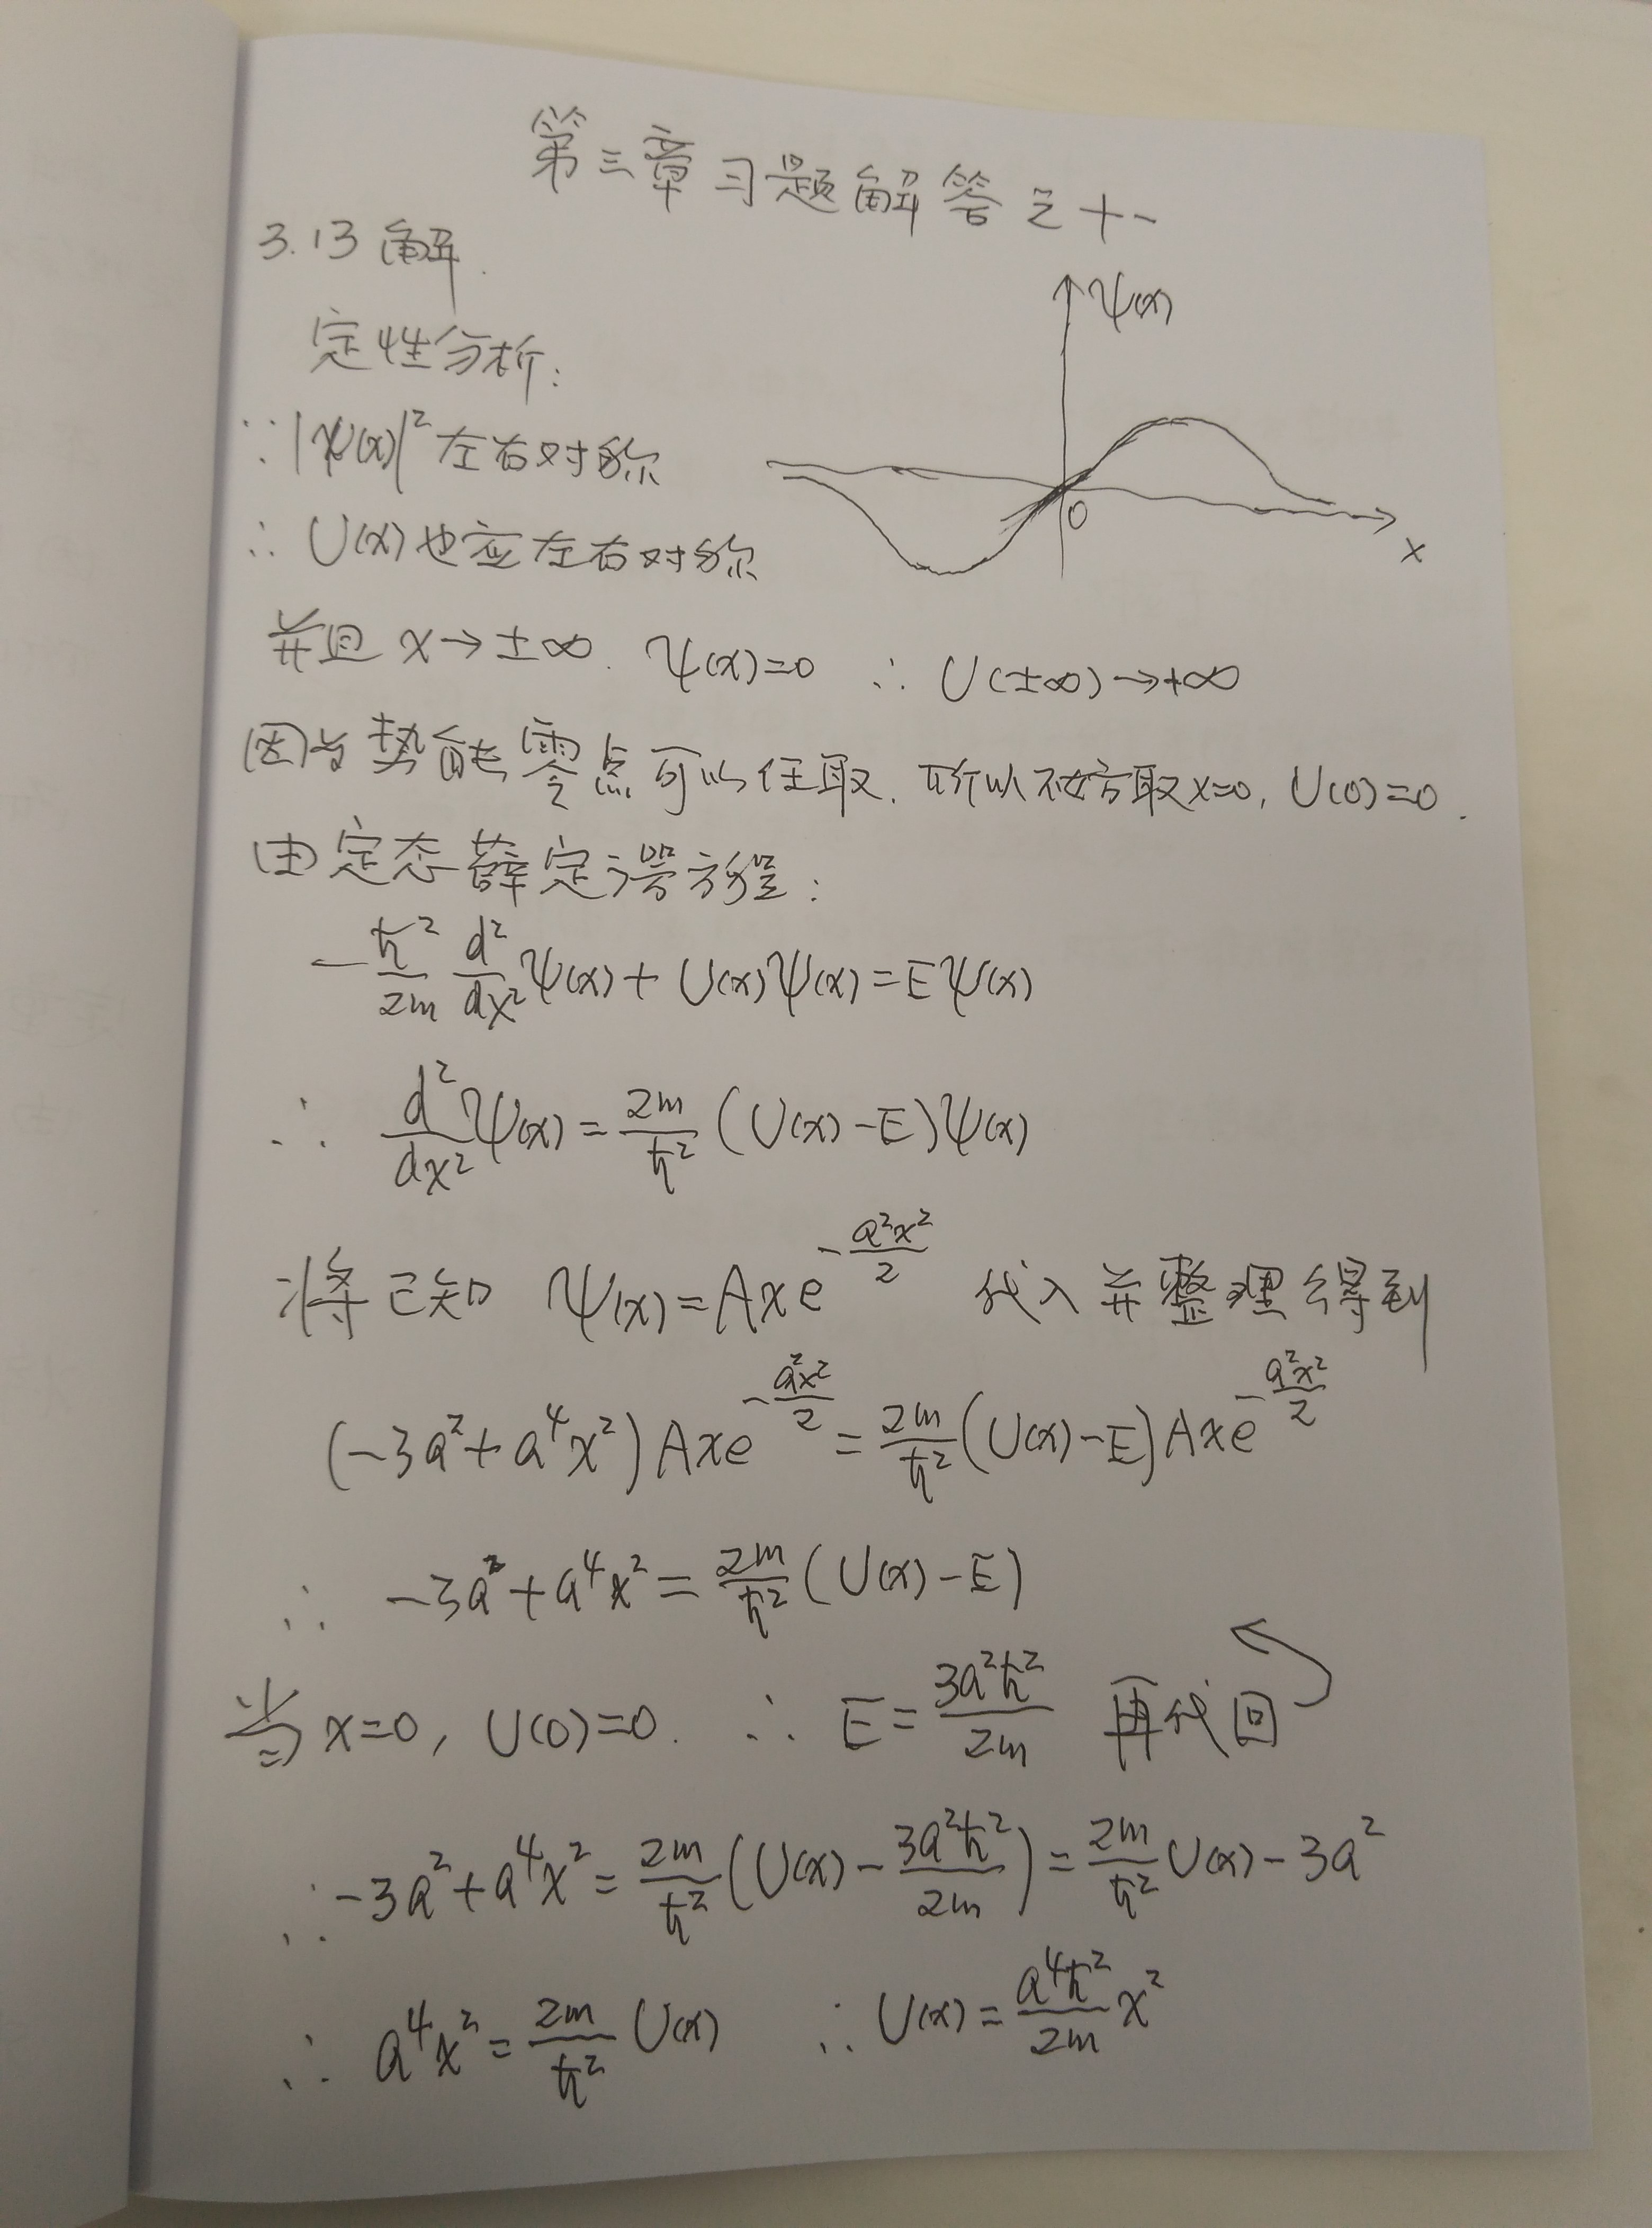 第三章习题解答之十一
3.13 解.
ψ(x)
0
x
定性分析:
∵|ψ(x)|² 左右对称
∴ U(x)也应左右对称
并且 x→±∞. ψ(x)=0 ∴ U(±∞)→+∞
因为势能零点可以任取. 所以不妨取x=0, U(0)=0.
由定态薛定谔方程:
-ħ²/2m d²/dx² ψ(x) + U(x)ψ(x) = Eψ(x)
∴ d²/dx² ψ(x) = 2m/ħ² (U(x)-E)ψ(x)
将已知 ψ(x)=Axe^(-a²x²/2) 代入并整理得到
(-3a²+a⁴x²)Axe^(-a²x²/2) = 2m/ħ² (U(x)-E)Axe^(-a²x²/2)
∴ -3a²+a⁴x² = 2m/ħ² (U(x)-E)
当x=0, U(0)=0. ∴ E = 3a²ħ²/2m 再代回
∴ -3a²+a⁴x² = 2m/ħ² (U(x) - 3a²ħ²/2m) = 2m/ħ² U(x) - 3a²
∴ a⁴x² = 2m/ħ² U(x) ∴ U(x) = a⁴ħ²/2m x²